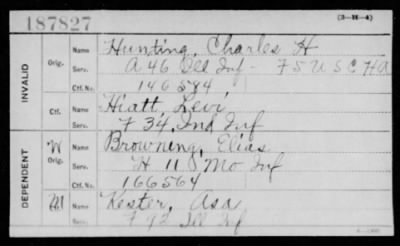 187827
(3-16-4)
INVALID
Orig.
Name Hunting, Charles H
Serv. A 46 Ill Inf - F 5 U S C H A
Ctf. No. 146584
Ctf.
Name Hiatt, Levi
Serv. F 34, Ind Inf
DEPENDENT
"W"
Orig.
Name Browning, Elias
Serv. H 11 Mo Inf
Ctf. No. 166564
Name Kester, Asa
Serv. F 92 Ill Inf